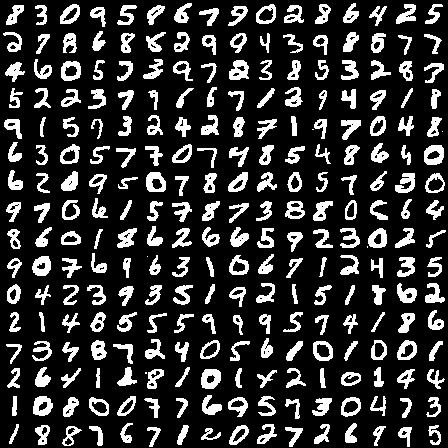 8 3 0 9 5 8 6 7 9 0 2 8 6 4 2 5
2 7 8 6 8 8 2 9 9 4 3 9 8 8 7 7
4 6 0 5 7 3 9 7 2 3 8 5 3 2 8 3
5 2 2 3 7 9 6 6 7 1 2 9 4 9 1 8
9 1 5 7 3 2 4 2 8 7 1 9 7 0 4 8
6 3 0 5 7 7 0 7 4 8 5 4 8 6 4 0
6 2 8 9 5 0 7 8 0 2 0 5 7 6 3 0
9 7 0 6 1 5 7 8 7 3 8 8 0 6 4
8 6 0 1 8 6 2 6 6 5 9 2 3 0 2 5
9 0 7 6 9 6 3 1 0 6 7 1 2 4 3 5
0 4 2 3 9 3 5 1 9 2 1 5 1 8 6 2
2 1 4 8 5 5 5 9 9 9 5 7 4 1 8 6
7 3 4 8 7 2 4 0 5 6 1 0 1 0 0 1
2 6 4 1 2 8 1 0 1 4 2 1 0 1 4 4
1 0 8 0 0 7 7 6 9 5 7 3 0 4 7 3
1 8 8 7 6 7 1 2 0 2 7 2 6 9 9 5